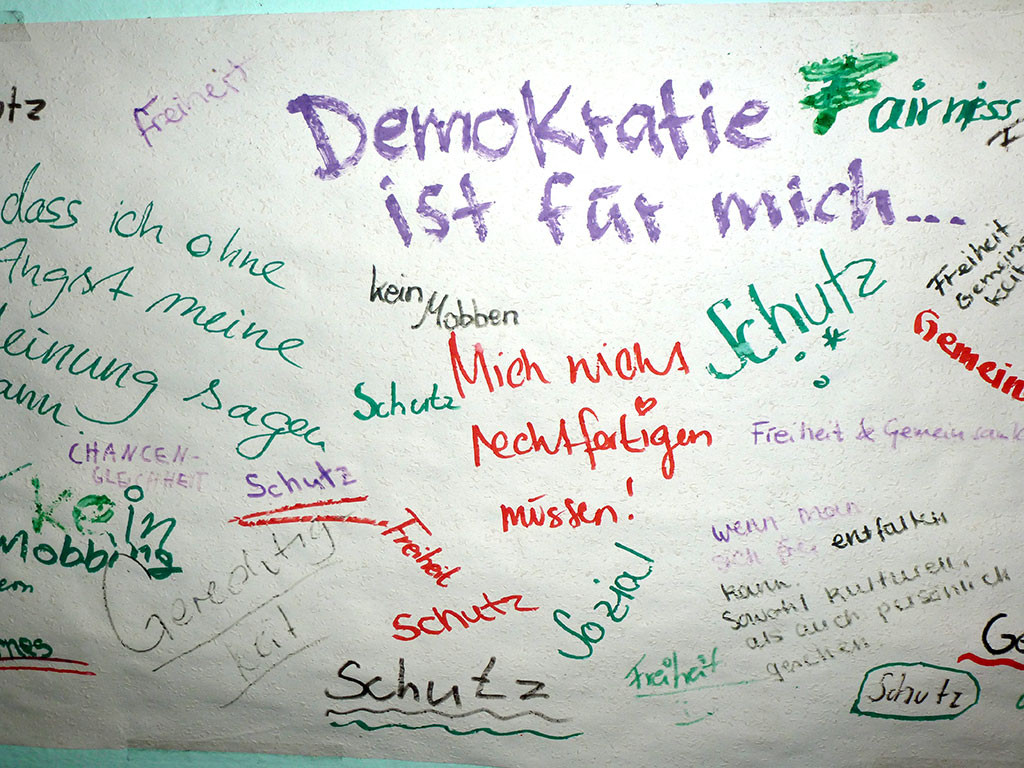 Freiheit
Demokratie
ist für mich...
Fairness
dass ich ohne
Angst meine
einung sagen
ann.
kein Mobben
Schutz
Freiheit
Gemein
Mich nicht
rechtfertigen
müssen!
Gemein
Schutz
Freiheit & Gemeinsamk
CHANCEN-
GLEICHHEIT
Schutz
kein
Mobbing
Gerechtig
keit
Freiheit
Schutz
Sozial
wenn man
sich frei entfalten
kann.
Sowohl kulturell,
als auch persönlich
gesehen.
Freiheit
Schutz
Schutz
Ge